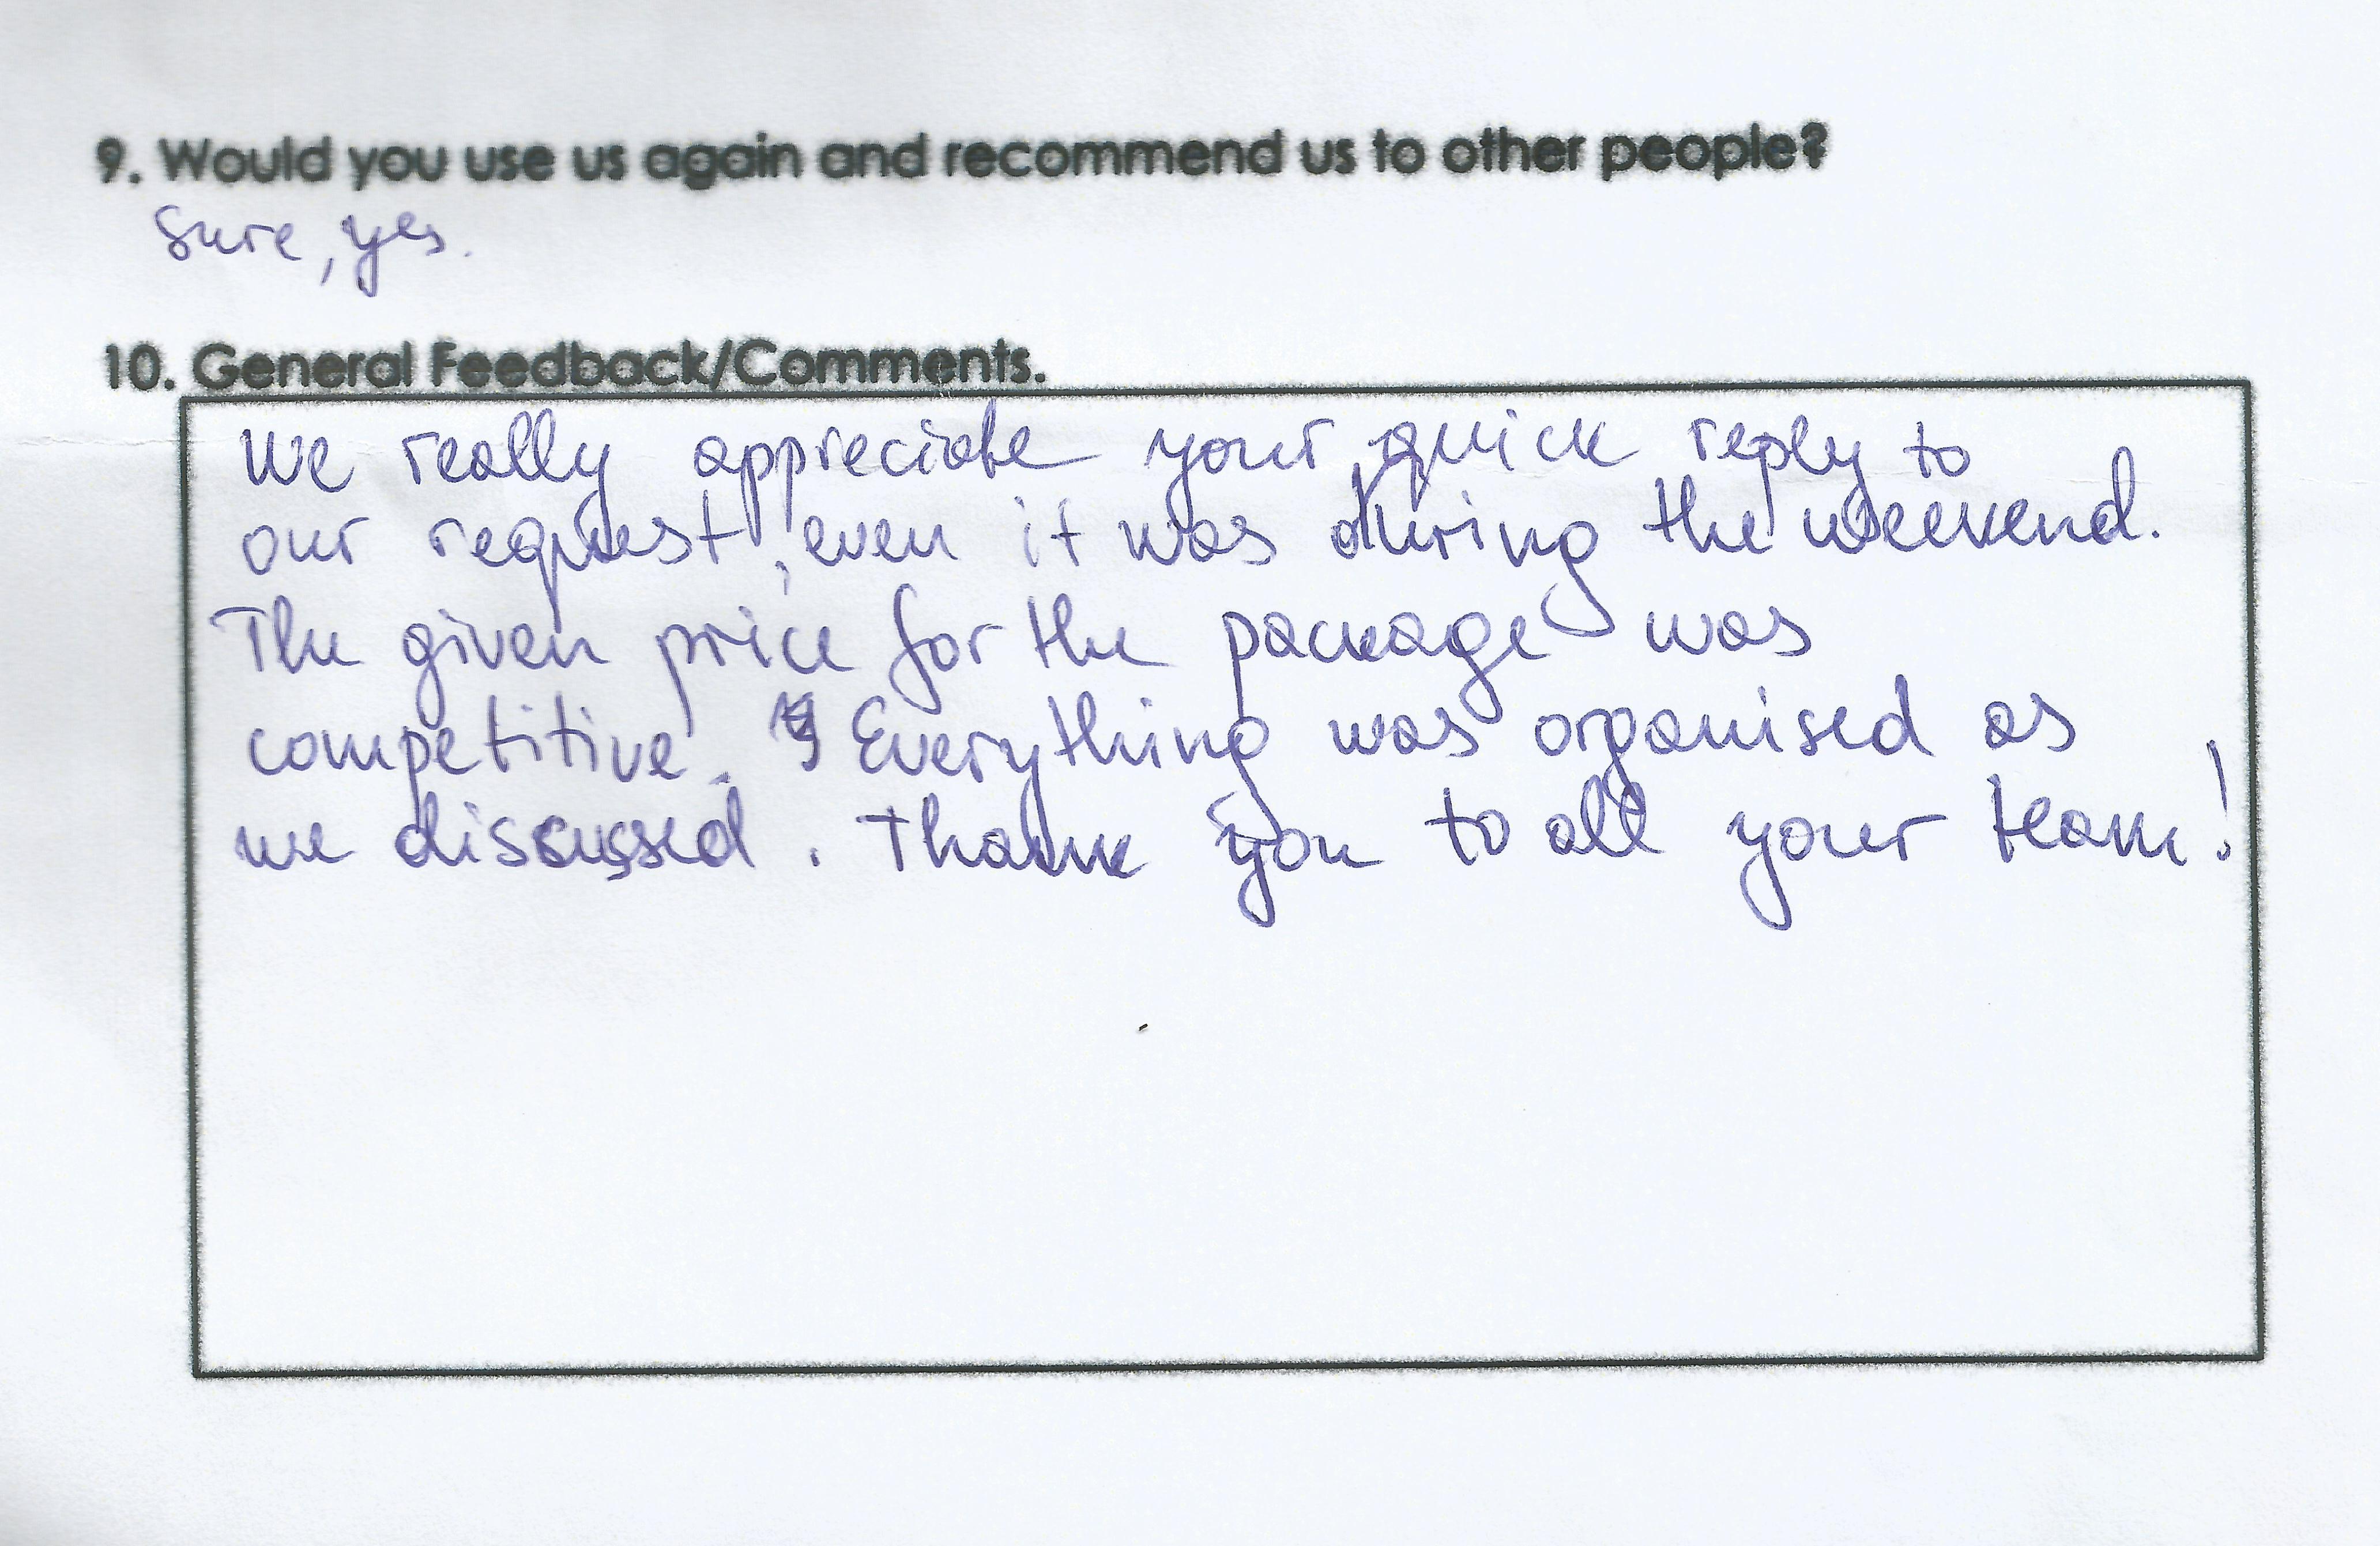 9. Would you use us again and recommend us to other people?
Sure, yes.
10. General Feedback/Comments.
We really appreciate your quick reply to
our request, even it was during the weekend.
The given price for the package was
competitive. Everything was organised as
we discussed. Thank you to all your team!